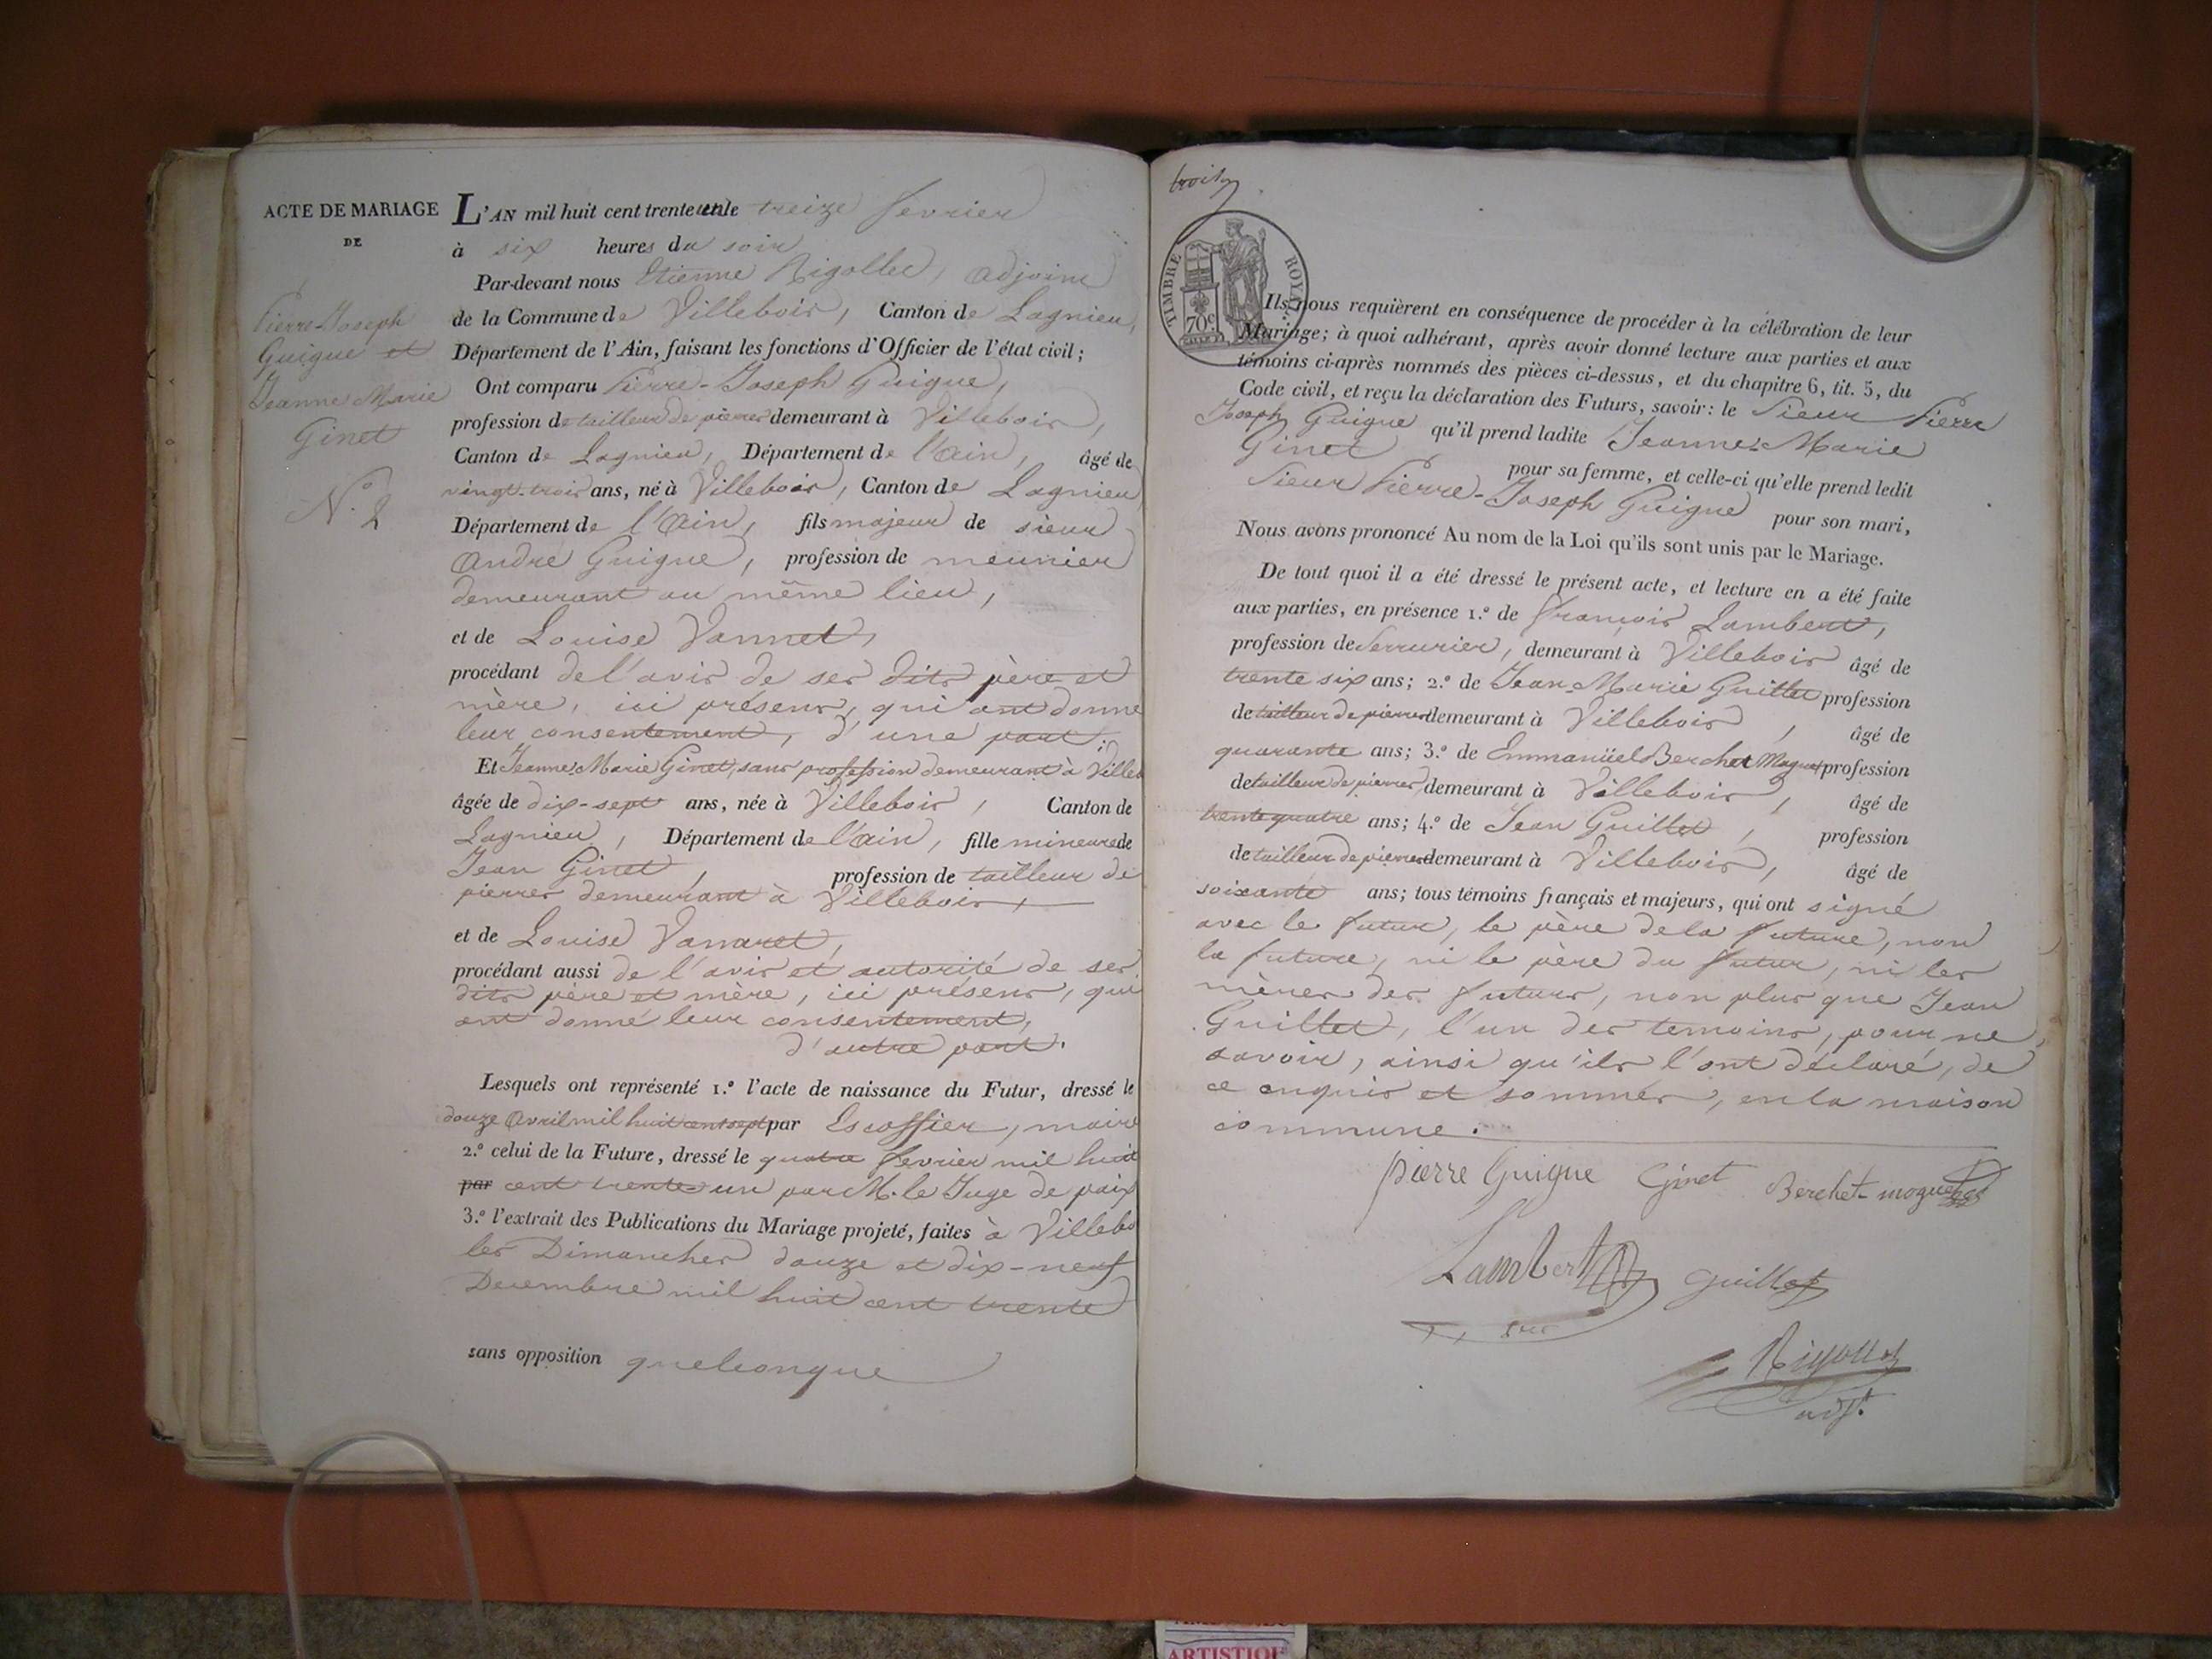 ACTE DE MARIAGE
DE
Pierre-Joseph
Guigue et
Jeanne Marie
Ginet
N.º 2
L'AN mil huit cent trente un le treize fevrier
à six heures du soir
Par-devant nous Etienne Rigollet, adjoint
de la Commune de Villebois, Canton de Lagnieu,
Département de l'Ain, faisant les fonctions d'Officier de l'état civil;
Ont comparu Pierre-Joseph Guigue,
profession de tailleur de pierres demeurant à Villebois,
Canton de Lagnieu, Département de l'Ain, âgé de
vingt-trois ans, né à Villebois, Canton de Lagnieu
Département de l'Ain, fils majeur de sieur
André Guigue, profession de meunier
demeurant au même lieu,
et de Louise Vannet,
procédant de l'avis de ses dits père et
mère, ici présens, qui ont donné
leur consentement, d'une part;
Et Jeanne-Marie Ginet, sans profession demeurant à Villeb
âgée de dix-sept ans, née à Villebois, Canton de
Lagnieu, Département de l'Ain, fille mineure de
Jean Ginet, profession de tailleur de
pierres demeurant à Villebois,
et de Louise
procédant aussi de l'avis et autorité de ses
dits père et mère, ici présens, qui
ont donné leur consentement,
d'autre part.
Lesquels ont représenté 1.º l'acte de naissance du Futur, dressé le
douze avril mil huit cent sept par Escoffier, maire
2.º celui de la Future, dressé le quatre fevrier mil huit
par cent trente un par M. le Juge de paix
3.º l'extrait des Publications du Mariage projeté, faites à Villebo
les Dimanches douze et dix-neuf
Decembre mil huit cent trente
sans opposition quelconque
trois
TIMBRE ROYAL
70 c.
Ils nous requièrent en conséquence de procéder à la célébration de leur
Mariage; à quoi adhérant, après avoir donné lecture aux parties et aux
témoins ci-après nommés des pièces ci-dessus, et du chapitre 6, tit. 5, du
Code civil, et reçu la déclaration des Futurs, savoir: le Sieur Pierre
Joseph Guigue qu'il prend ladite Jeanne-Marie
Ginet pour sa femme, et celle-ci qu'elle prend ledit
Sieur Pierre-Joseph Guigue pour son mari,
Nous avons prononcé Au nom de la Loi qu'ils sont unis par le Mariage.
De tout quoi il a été dressé le présent acte, et lecture en a été faite
aux parties, en présence 1.º de François Lambert,
profession de Serrurier, demeurant à Villebois âgé de
trente six ans; 2.º de Jean-Marie Guillet profession
de tailleur de pierres demeurant à Villebois, âgé de
quarante ans; 3.º de Emmanüel Berchet Moguet profession
de tailleur de pierres, demeurant à Villebois, âgé de
trente quatre ans; 4.º de Jean Guillet, profession
de tailleur de pierres demeurant à Villebois, âgé de
soixante ans; tous témoins français et majeurs, qui ont signé
avec le futur, le père de la future, non
la future, ni le père du futur, ni les
mères des futurs, non plus que Jean
Guillet, l'un des temoins, pour ne
savoir, ainsi qu'ils l'ont déclaré, de
ce enquis et sommés, en la maison
commune.
pierre Guigue Ginet Berchet-moguet
Lambert Guillet
Rigollet
adjt.
ARTISTIQUE